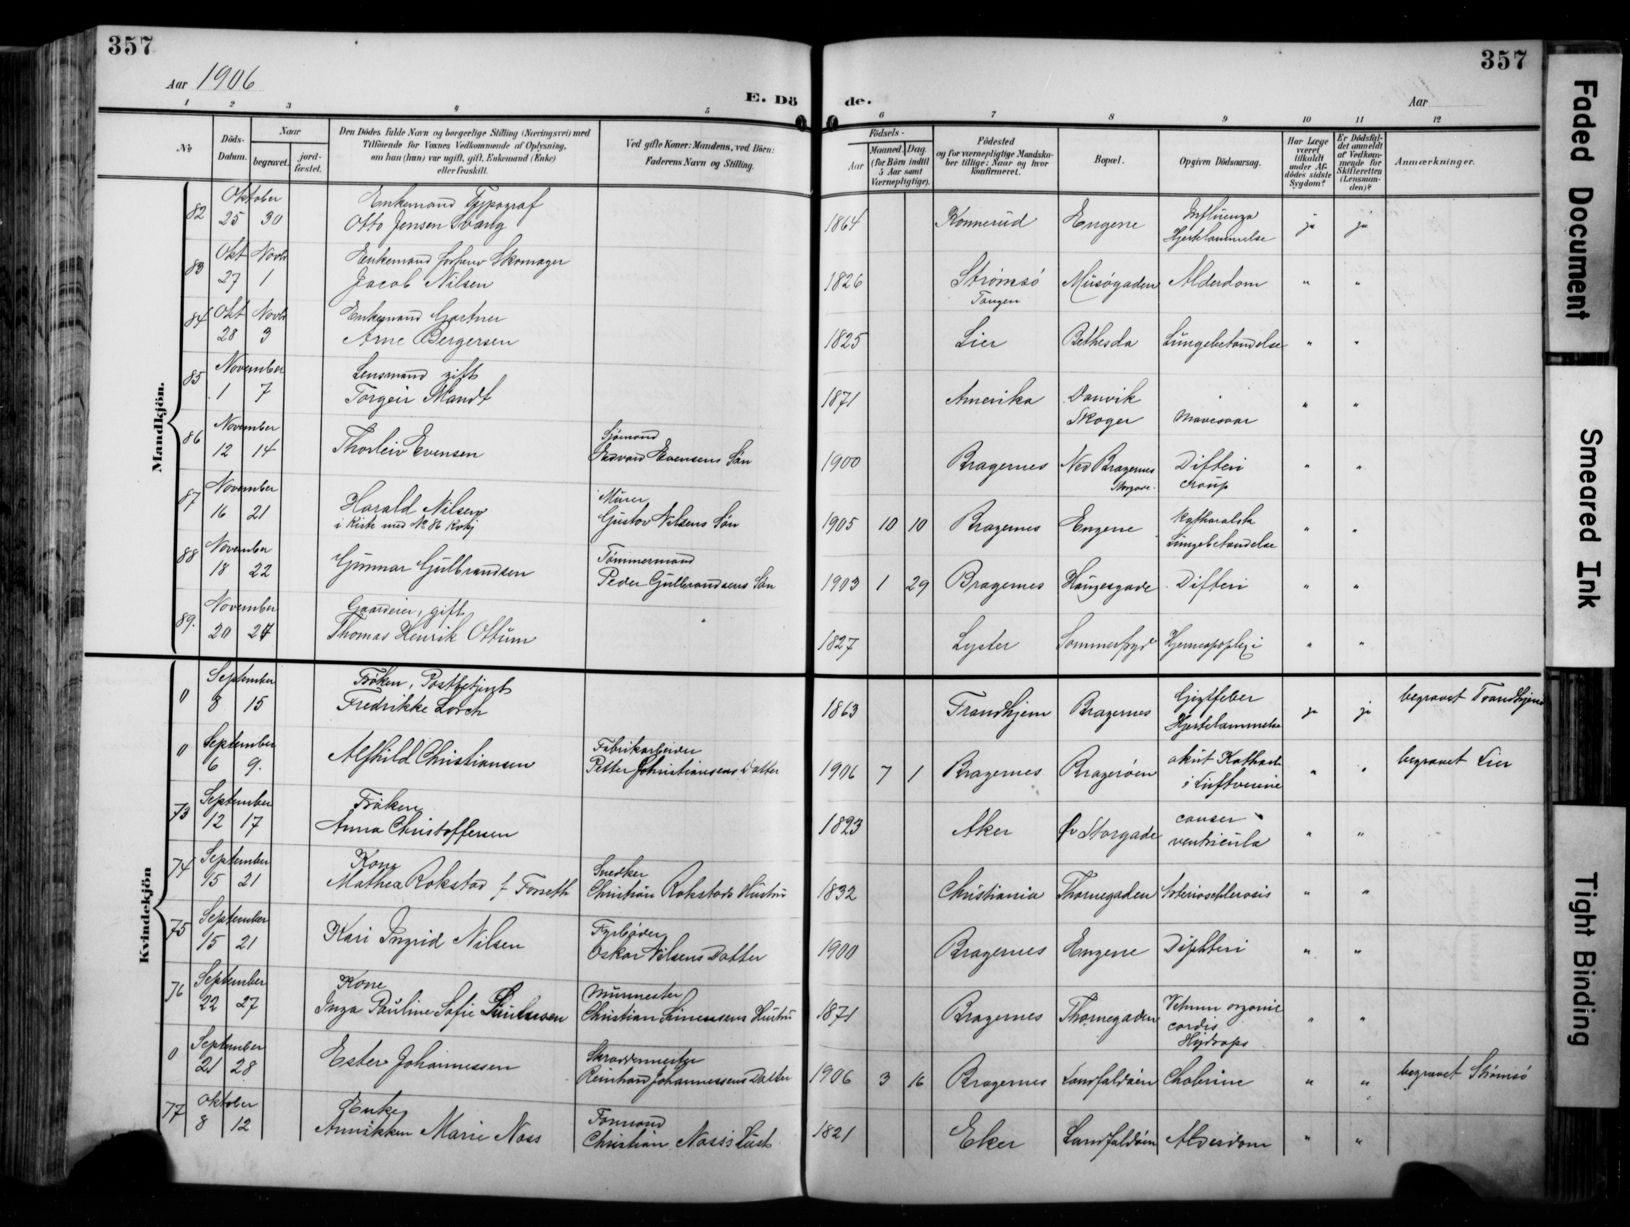 357
357
Aar 1906
E. Dö de.
Aar
1 2 3 4 5 6 7 8 9 10 11 12
No
Döds-Datum.
Naar
begravet.
jord-fæstet.
Den Dödes fulde Navn og borgerlige Stilling (Næringsvei) med
Tilföiende for Voxnes Vedkommende af Oplysning,
om han (hun) var ugift, gift, Enkemand (Enke)
eller fraskilt.
Ved gifte Koner: Mandens, ved Börn:
Faderens Navn og Stilling.
Födsels-
Aar
Maaned. Dag.
(for Börn indtil
5 Aar samt
Værnepligtige).
Födested
og for værnepligtige Mandskaber tillige: Naar og hvor
konfirmeret.
Bopæl.
Opgiven Dödsaarsag.
Har Læge
været
tilkaldt
under Afdödes sidste
Sygdom?
Er Dödsfaldet anmeldt
af Vedkommende for
Skifteretten
(Lensmanden)?
Anmærkninger.
Mandkjön.
82 Oktober 25 30 Enkemand Typograf
Otto Jensen Svang 1864 Konnerud Engene Influenza
Hjertelammelse ja ja
83 Okt 27 Novbr 1 Enkemand forhenv Skomager
Jacob Nilsen 1826 Strømsø
Tangen Müsøgaden Alderdom " "
84 Okt 28 Novbr 3 Enkemand Gartner
Arne Bergersen 1825 Lier Bethesda Lungebetændelse " "
85 November 1 7 Lensmand gift
Torgeir Mandt 1871 Amerika Danvik
Skoger Mavesaar " "
86 November 12 14 Thorleiv Evensen Sjømand
Edvard Evensens Søn 1900 Bragernes Ned Bragernes
Storgade. Difteri
Croup " "
87 November 16 21 Harald Nilsen
i Kiste med No 86 Kobj Murer
Gustav Nilsens Søn 1905 10 10 Bragernes Engene Katharalsk
Lungebetændelse " "
88 November 18 22 Gunnar Gulbrandsen Tømmermand
Peder Gulbrandsens Søn 1903 1 29 Bragernes Haugesgade Difteri " "
89. November 20 27 Gaardeier, gift
Thomas Henrik Ottum 1827 Lyster Sommerfryd Hjerneapoplexi " "
Kvindekjön
0 September 8 15 Frøken, Postbetjent
Fredrikke Lorch 1863 Trondhjem Bragernes Gigtfeber
Hjertelammelse ja ja begravet Trondhjem
0 September 6 9. Alfhild Christiansen Fabrikarbeider
Petter Christiansens Datter 1906 7 1 Bragernes Bragerøen akut Katharh
i Luftveiene " " begravet Lier
73 September 12 17 Frøken
Anna Christoffersen 1823 Aker Øv Storgade cancer
ventricula " "
74 September 15 21 Kone
Mathea Rokstad f Forseth Snedker
Christian Rokstads Hustru 1832 Christiania Thornegaden Arteriosclerosis " "
75 September 15 21 Kari Ingrid Nilsen Fyrbøder
Oskar Nilsens Datter 1900 Bragernes Engene Diphteri " "
76 September 22 27 Kone
Inga Pauline Sofie Murmester
Christian Hustru 1871 Bragernes Thornegaden organic
cordis
Hydrops " "
0 September 21 28 Ester Johannessen Skræddermester
Reinhard Johannessens Datter 1906 3 16 Bragernes Landfaldøen Cholerine " " begravet Strømsø
77 Oktober 8 12 Enke
Annikken Marie Noss Formand
Christian Noss's 1821 Eker Landfaldøen Alderdom " "
Faded Document
Smeared Ink
Tight Binding